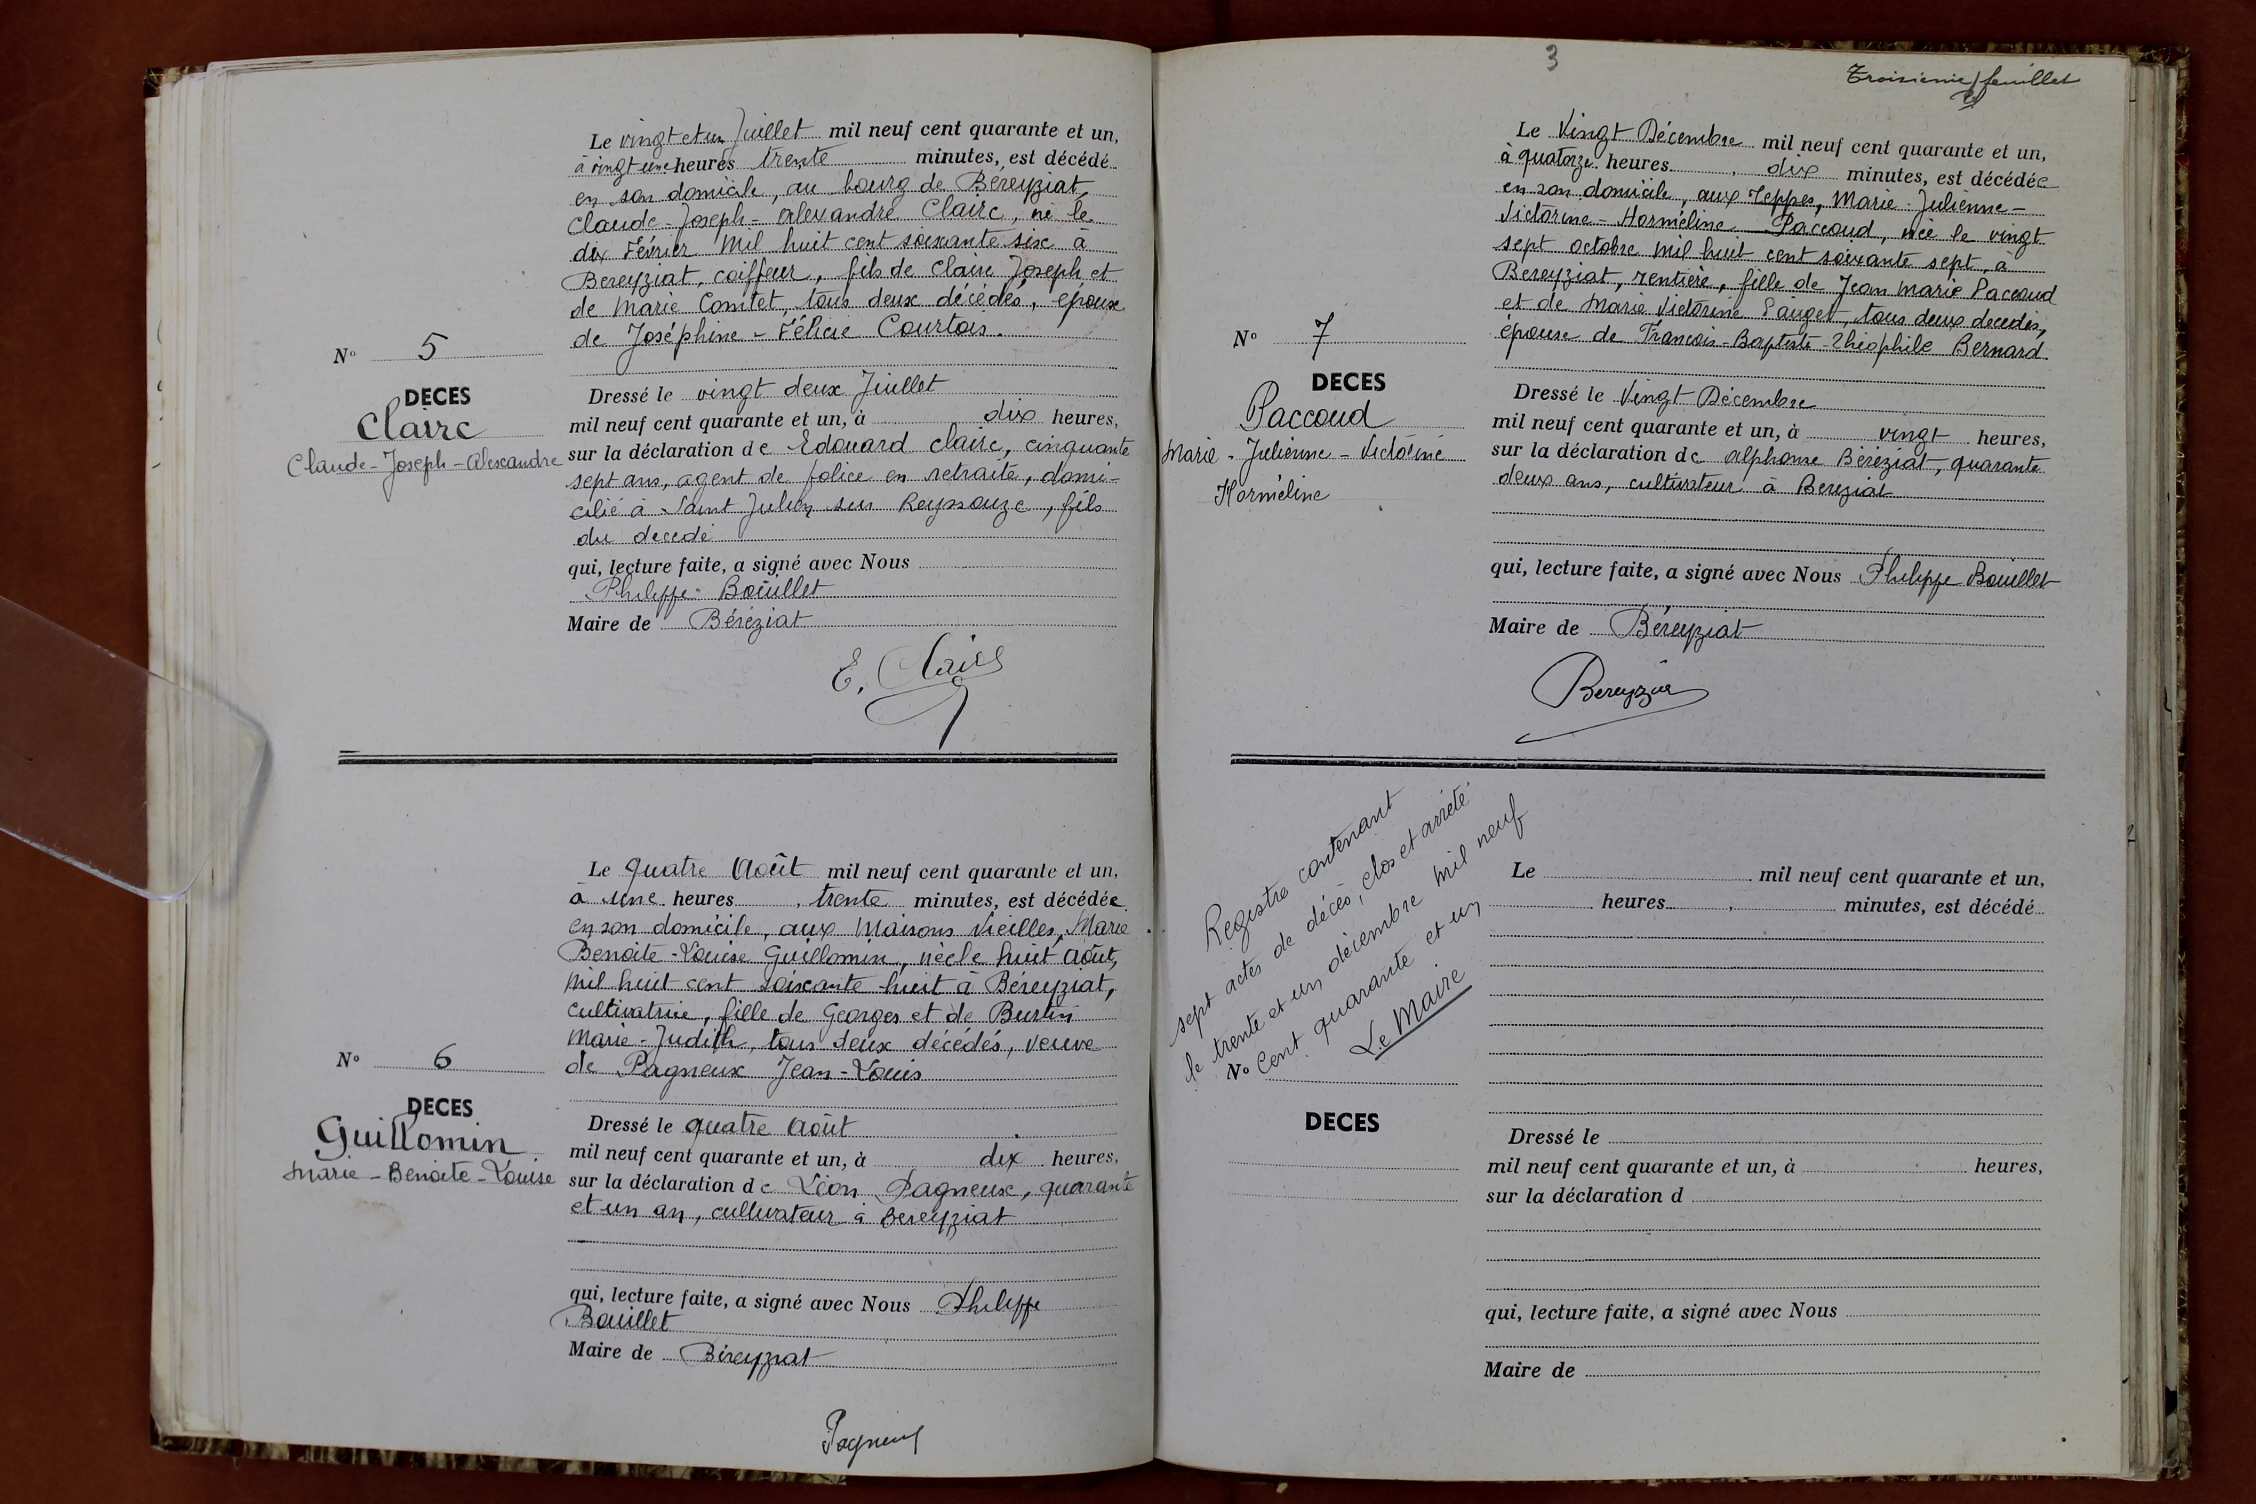 Le vingt et un Juillet mil neuf cent quarante et un,
à vingt une heures trente minutes, est décédé
en son domicile, au bourg de Béreyziat,
Claude-Joseph-Alexandre Claire, né le
dix Février mil huit cent soixante six à
Bereyziat, coiffeur, fils de Claire Joseph et
de Marie Comtet, tous deux décédés, époux
de Joséphine-Félicie Courtois.
N° 5
DECES
Claire
Claude-Joseph-Alexandre
Dressé le vingt deux Juillet
mil neuf cent quarante et un, à dix heures,
sur la déclaration de Edouard Claire, cinquante
sept ans, agent de police en retraite, domi-
cilié à Saint Julien sur Reyssouze, fils
du decedé
qui, lecture faite, a signé avec Nous
Philippe Bouillet
Maire de Béréziat
E. Claire
Le quatre Août mil neuf cent quarante et un,
à une heures trente minutes, est décédée
en son domicile, aux Maisons Vieilles, Marie
Benoite-Louise Guillomin, née le huit août,
mil huit cent soixante-huit à Béreyziat,
cultivatrice, fille de Georges et de Burtin
Marie-Judith, tous deux décédés, veuve
de Pagneux Jean-Louis
N° 6
DECES
Guillomin
Marie-Benoite-Louise
Dressé le quatre Août
mil neuf cent quarante et un, à dix heures,
sur la déclaration de Léon Pagneux, quarante
et un an, cultivateur à Bereyziat
qui, lecture faite, a signé avec Nous Philippe
Bouillet
Maire de Béreyziat
Pagneux
3
Troisième feuillet
Le Vingt Décembre mil neuf cent quarante et un,
à quatorze heures dix minutes, est décédée
en son domicile, aux Teppes, Marie-Julienne-
Victorine-Horméline Paccoud, née le vingt
sept octobre mil huit cent soixante sept, à
Bereyziat, rentière, fille de Jean Marie Paccoud
et de Marie Victorine Pauget, tous deux decedés,
épouse de François-Baptiste-Théophile Bernard
N° 7
DECES
Paccoud
Marie-Julienne-Victorine
Horméline
Dressé le Vingt Décembre
mil neuf cent quarante et un, à vingt heures,
sur la déclaration de Alphonse Béréziat, quarante
deux ans, cultivateur à Bereziat
qui, lecture faite, a signé avec Nous Philippe Bouillet
Maire de Béreyziat
Bereyziat
Registre contenant
sept actes de décès, clos et arrêté
le trente et un décembre mil neuf
cent quarante et un
Le Maire
Le mil neuf cent quarante et un,
heures minutes, est décédé
N°
DECES
Dressé le
mil neuf cent quarante et un, à heures,
sur la déclaration d
qui, lecture faite, a signé avec Nous
Maire de